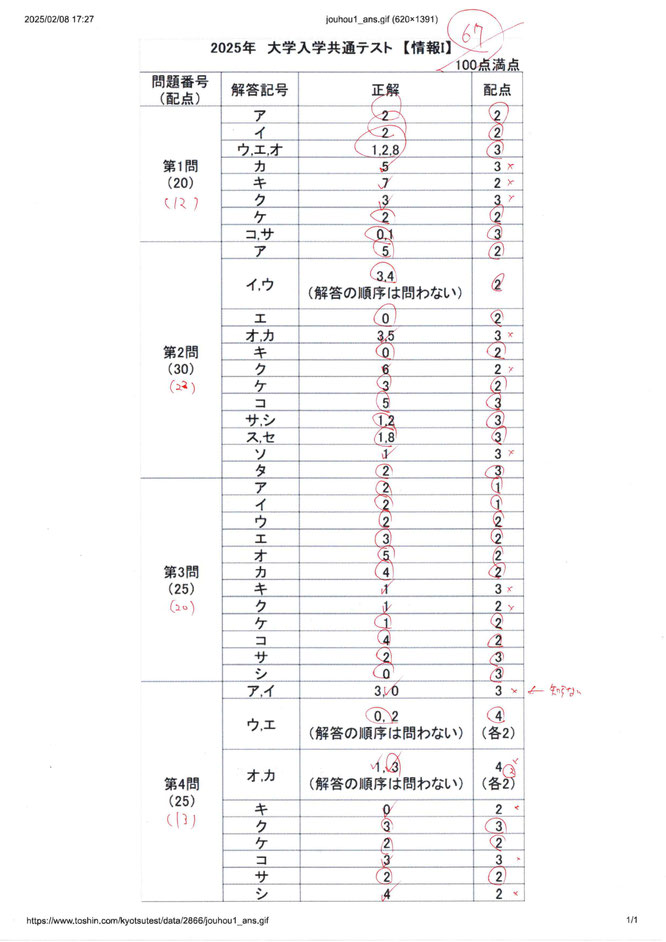 2025/02/08 17:27
jouhou1_ans.gif (620×1391)
67
2025年 大学入学共通テスト 【情報Ⅰ】
100点満点
問題番号 (配点) 解答記号 正解 配点
第1問 (20) (12)
ア 2 2
イ 2 2
ウ,エ,オ 1,2,8 3
カ 5 3 ×
キ 7 2 ×
ク 3 3 ×
ケ 2 2
コ,サ 0,1 3
第2問 (30) (22)
ア 5 2
イ,ウ 3,4 2
(解答の順序は問わない)
エ 0 2
オ,カ 3,5 3 ×
キ 0 2
ク 6 2 ×
ケ 3 2
コ 5 3
サ,シ 1,2 3
ス,セ 1,8 3
ソ 1 3 ×
タ 2 3
第3問 (25) (20)
ア 2 1
イ 2 1
ウ 2 2
エ 3 2
オ 5 2
カ 4 2
キ 1 3 ×
ク 1 2 ×
ケ 1 2
コ 4 2
サ 2 3
シ 0 3
第4問 (25) (13)
ア,イ 3,0 3 × ←
ウ,エ 0, 2 4
(解答の順序は問わない) (各2)
オ,カ 1, 3 4 ×
(解答の順序は問わない) (各2)
キ 0 2 ×
ク 3 3
ケ 2 2
コ 3 3 ×
サ 2 2
シ 4 2 ×
https://www.toshin.com/kyotsutest/data/2866/jouhou1_ans.gif
1/1